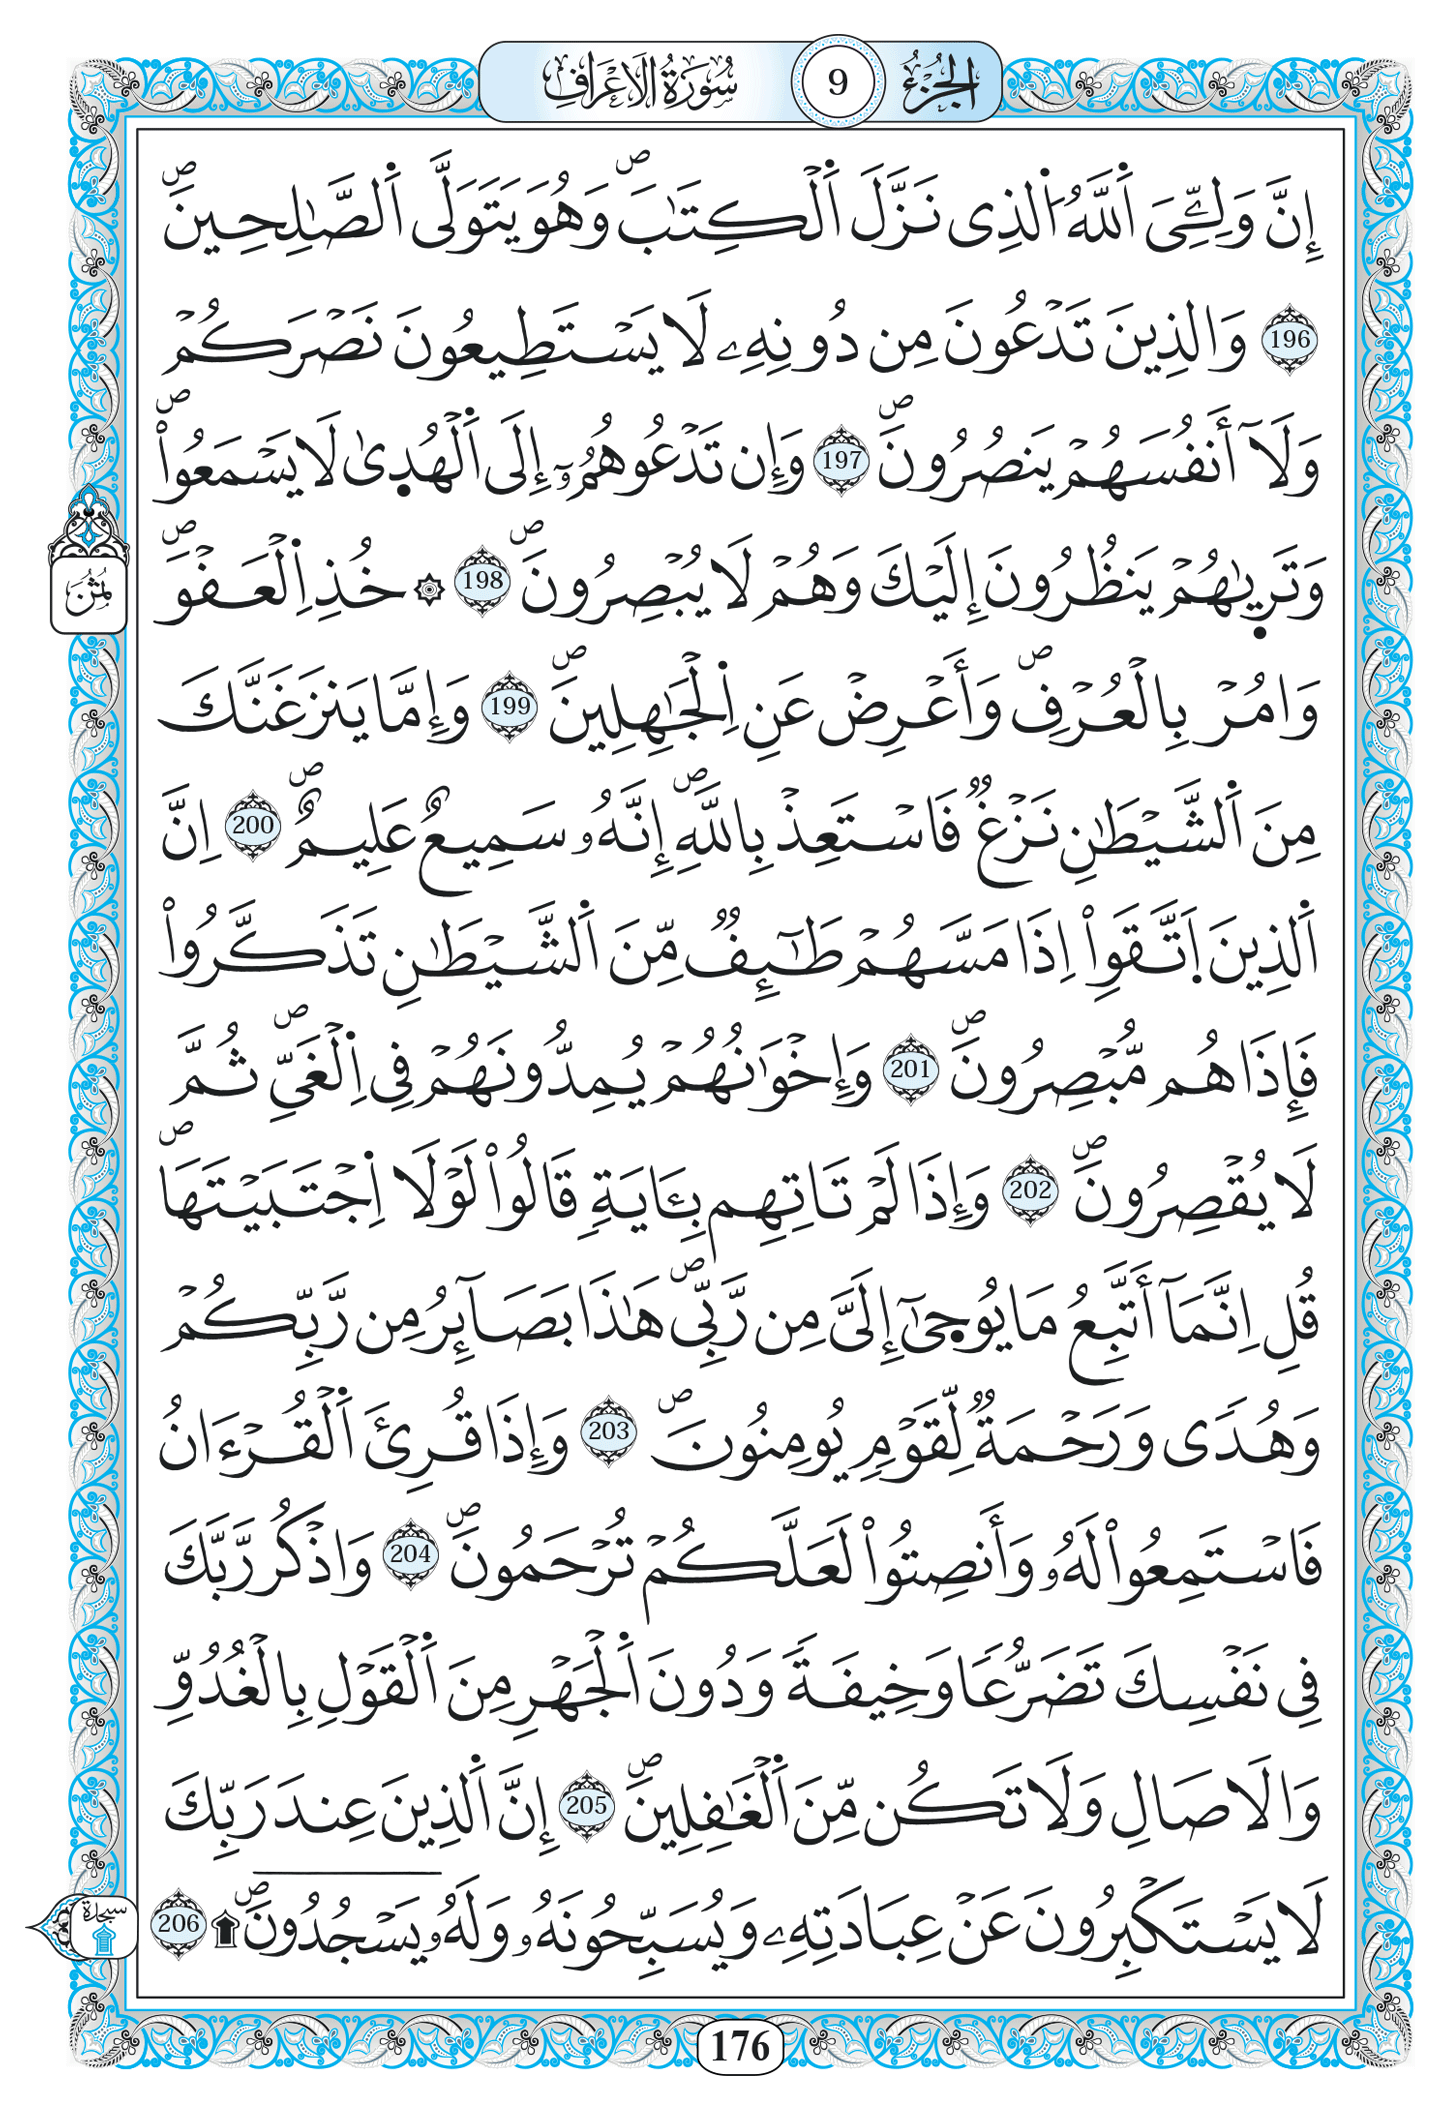 الجزء 9 سورة الاعراف
إِنَّ وَلِـِّۧيَ اَ۬للَّهُ اُ۬لذِے نَزَّلَ اَ۬لْكِتَٰبَۖ وَهُوَ يَتَوَلَّي اَ۬لصَّٰلِحِينَۖ
196 وَالذِينَ تَدْعُونَ مِن دُونِهِۦ لَا يَسْتَطِيعُونَ نَصْرَكُمْ
وَلَآ أَنفُسَهُمْ يَنصُرُونَۖ 197 وَإِن تَدْعُوهُمُۥٓ إِلَي اَ۬لْهُدۭيٰ لَا يَسْمَعُواْۖ
وَتَر۪يٰهُمْ يَنظُرُونَ إِلَيْكَ وَهُمْ لَا يُبْصِرُونَۖ 198 ۞ خُذِ اِ۬لْعَفْوَۖ
ثُمُنُ
وَامُرْ بِالْعُرْفِۖ وَأَعْرِضْ عَنِ اِ۬لْجَٰهِلِينَۖ 199 وَإِمَّا يَنزَغَنَّكَ
مِنَ اَ۬لشَّيْطَٰنِ نَزْغٞ فَاسْتَعِذْ بِاللَّهِۖ إِنَّهُۥ سَمِيعٌ عَلِيمٌۖ 200 اِنَّ
اَ۬لذِينَ اَ۪تَّقَوِاْ اِذَا مَسَّهُمْ طَٰٓئِفٞ مِّنَ اَ۬لشَّيْطَٰنِ تَذَكَّرُواْ
فَإِذَا هُم مُّبْصِرُونَۖ 201 وَإِخْوَٰنُهُمْ يُمِدُّونَهُمْ فِے اِ۬لْغَيِّۖ ثُمَّ
لَا يُقْصِرُونَۖ 202 وَإِذَا لَمْ تَاتِهِم بِـَٔايَةٖ قَالُواْ لَوْلَا اَ۪جْتَبَيْتَهَاۖ
قُلِ اِنَّمَآ أَتَّبِعُ مَا يُوح۪يٰٓ إِلَيَّ مِن رَّبِّےۖ هَٰذَا بَصَآئِرُ مِن رَّبِّكُمْ
وَهُديٗ وَرَحْمَةٞ لِّقَوْمٖ يُومِنُونَۖ 203 وَإِذَا قُرِئَ اَ۬لْقُرْءَانُ
فَاسْتَمِعُواْ لَهُۥ وَأَنصِتُواْ لَعَلَّكُمْ تُرْحَمُونَۖ 204 وَاذْكُر رَّبَّكَ
فِے نَفْسِكَ تَضَرُّعاٗ وَخِيفَةٗ وَدُونَ اَ۬لْجَهْرِ مِنَ اَ۬لْقَوْلِ بِالْغُدُوِّ
وَالَاصَالِ وَلَا تَكُن مِّنَ اَ۬لْغَٰفِلِينَۖ 205 إِنَّ اَ۬لذِينَ عِندَ رَبِّكَ
لَا يَسْتَكْبِرُونَ عَنْ عِبَادَتِهِۦ وَيُسَبِّحُونَهُۥ وَلَهُۥ يَسْجُدُونَۖ ۩ 206
سجدة
176